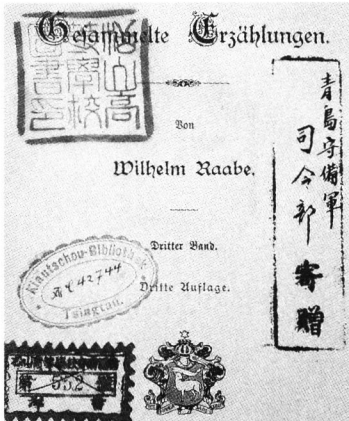 Gesammelte Erzählungen.
Von
Wilhelm Raabe.
Dritter Band.
Dritte Auflage.
青島守備軍
司令部 寄贈
Kiautschou-Bibliothek
42744
Tsingtau.
松山高
等學校
圖書印
552